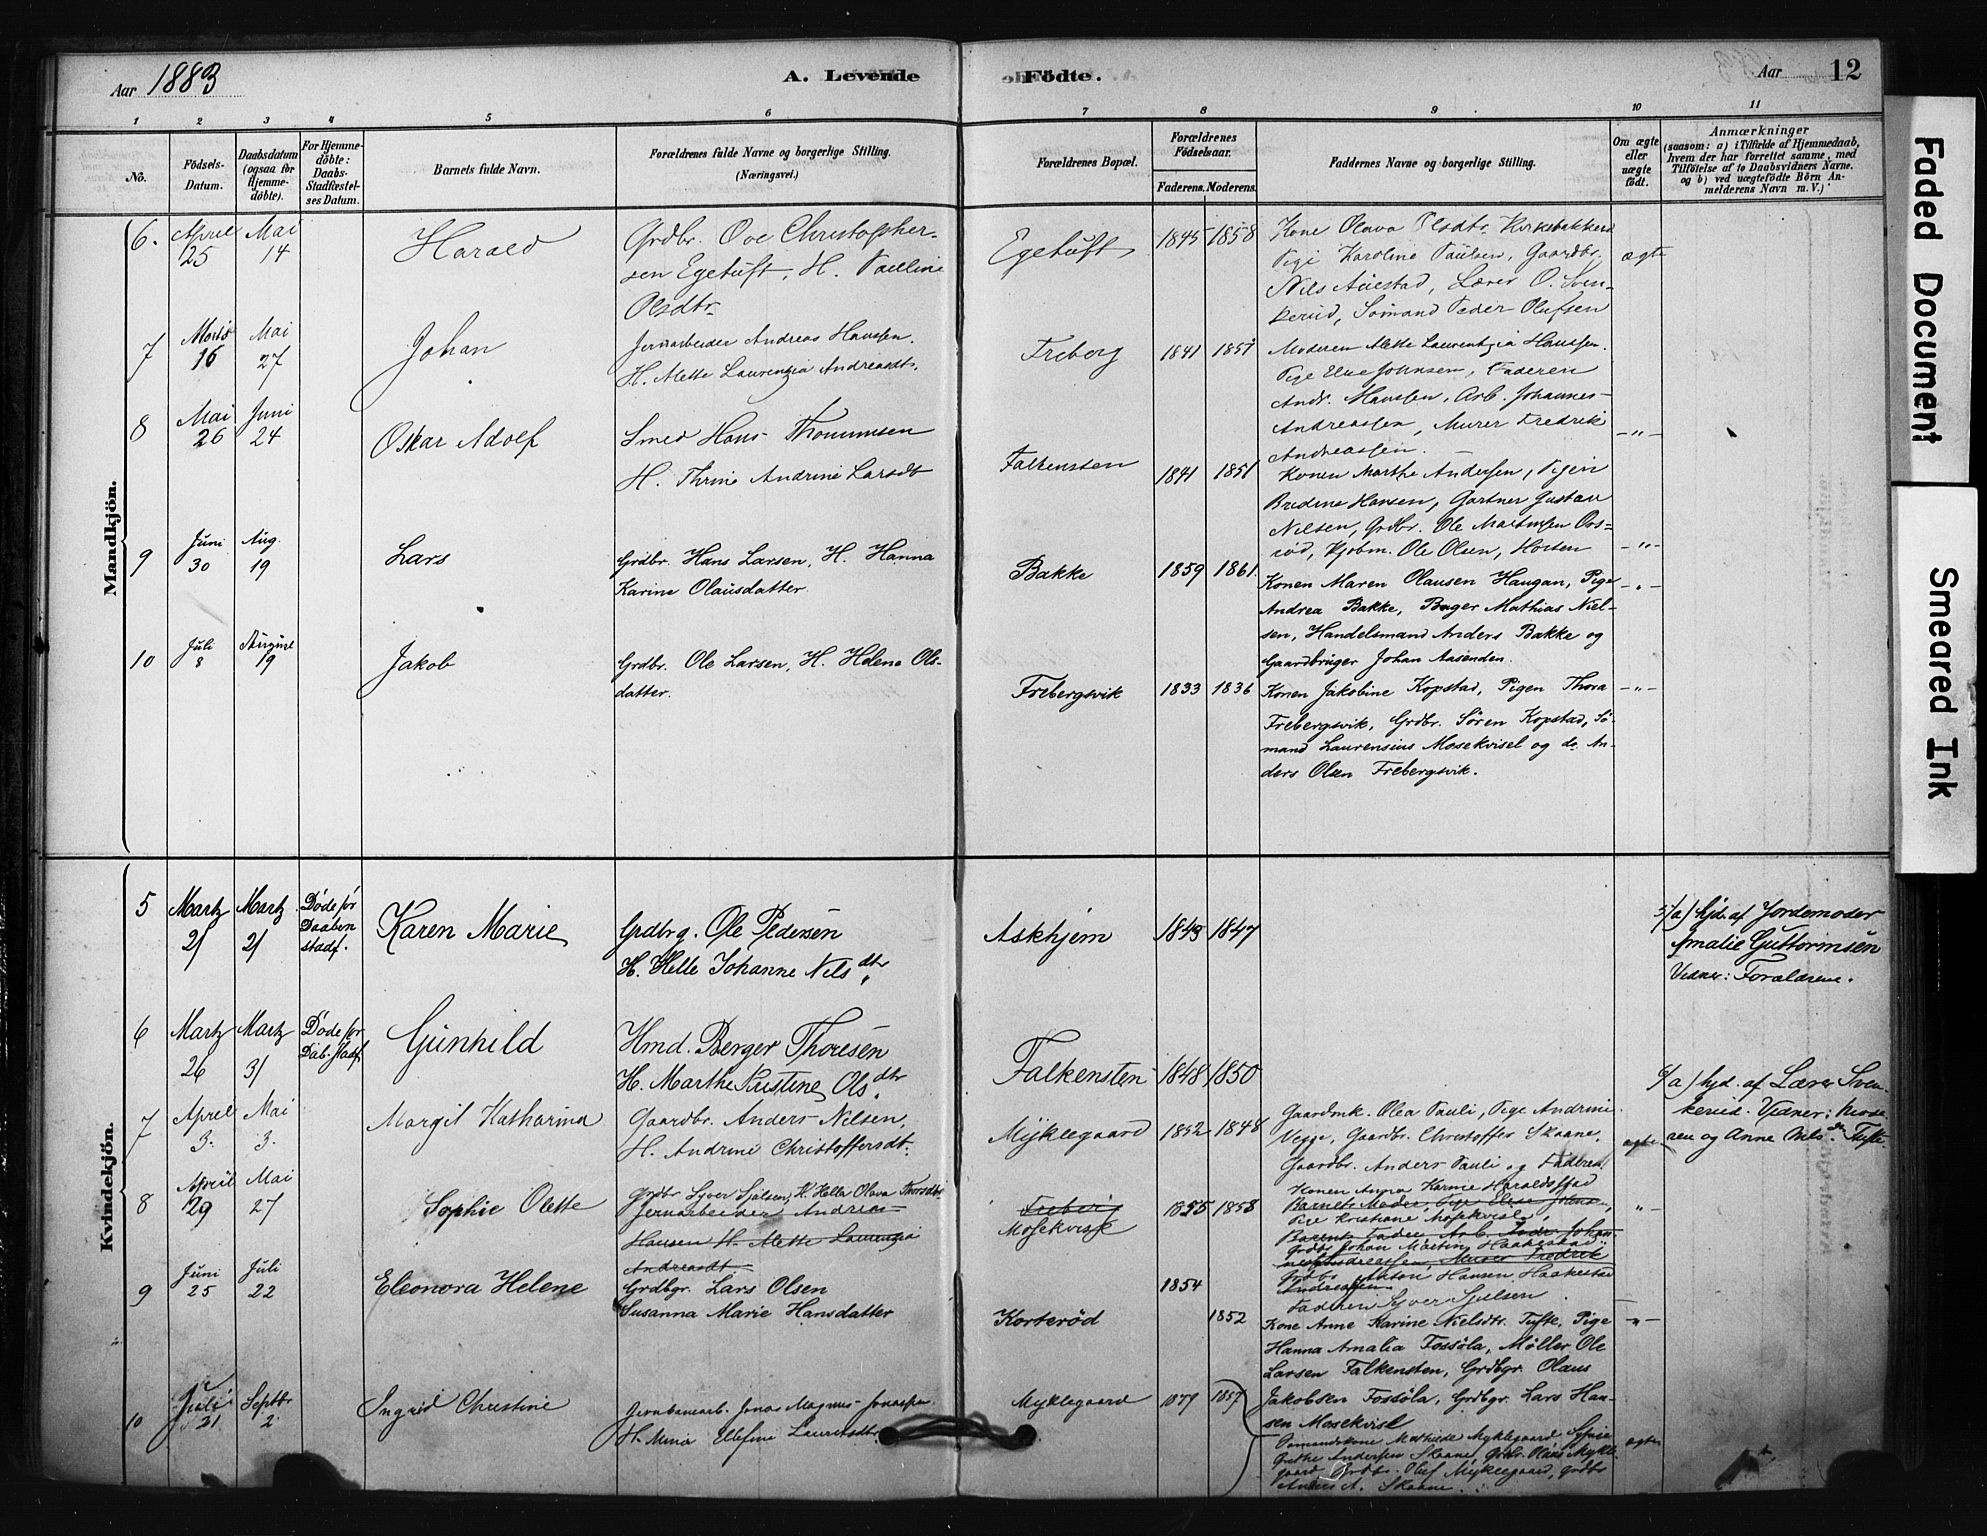 Aar 1883
A. Levende Födte.
Aar 12
1 2 3 4 5 6 7 8 9 10 11
No.
Födsels-Datum.
Daabsdatum (ogsaa for Hjemmedöbte).
For Hjemmedöbte: Daabs-Stadfæstelses Datum.
Barnets fulde Navn.
Forældrenes fulde Navne og borgerlige Stilling. (Næringsvei.)
Forældrenes Bopæl.
Forældrenes Födselsaar.
Faderens. Moderens.
Faddernes Navne og borgerlige Stilling.
Om ægte eller uægte födt.
Anmærkninger
(saasom: a) i Tilfælde af Hjemmedaab, hvem der har forrettet samme, med Tilföielse af to Daabsvidners Navne, og b) ved uægtefödte Börn Anmelderens Navn m. V.)
Mandkjön.
6. April 25 Mai 14 Harald
Grdbr. Ove Christopher-
sen Egetuft, H. Pauline
Olsdtr
Egetuft 1845 1858
Kone Olava Olsdtr. Kirkebakken
Pige Karoline Paulsen, Gaardbr.
Nils Auestad, Lærer O. Sven-
kerud, Sømand Peder Olufsen
ægte
7 Marts 16 Mai 27 Johan
Jernarbeider Andreas Hanssen.
H. Alette Laurenzia Andreasdt.
Freberg 1841 1851
Moderen Alette Laurentzia Hanssen.
Pige Elise Johnsen, Faderen
Andr. Hanssen, Arb. Johannes
Andreassen, Murer Fredrik
Andreassen.
-"-
8 Mai 26 Juni 24 Oskar Adolf
Smed Hans Thommesen
H. Thrine Andrine Larsdt
Falkensten 1841 1851
Konen Marthe Andersen, Pigen
Bredine Hansen, Gartner Gustav
Nilsen, Grdbr. Ole Martinsen Ors-
röd, Kjøbm. Ole Olsen, Horten
-"-
9 Juni 30 Aug. 19 Lars
Grdbr. Hans Larsen, H. Hanna
Karine Olausdatter.
Bakke 1859 1861
Konen Maren Olausen Haugan, Pige
Andrea Bakke, Bager Mathias Niel-
sen, Handelsmand Anders Bakke og
Gaardbruger Johan Aasenden.
-"-
10 Juli 8 August 19 Jakob
Grdbr. Ole Larsen, H. Helene Ols-
datter.
Frebergsvik 1833 1836
Konen Jakobine Kopstad, Pigen Thora
Frebergsvik, Grdbr. Sören Kopstad, Sö-
mand Laurensius Mosekvisel og do. An-
ders Olsen Frebergsvik.
-"-
Kvindekjön.
5 Martz 21 Martz 21
Døde før
Daaben
stadf.
Karen Marie
Grdbrg. Ole Pedersen
H. Helle Johanne Nilsdtr
Askhjem 1843 1847
5/a) hjd. af Jordemoder
Amalie Guttormsen
Vidner: Forældrene.
6 Martz 26 Martz 31
Døde før
Dåb. stadf.
Gunhild
Hmd. Berger Thoresen
H. Marthe Kristine Olsdtr
Falkensten 1848 1850
6/a) hjd. af Lærer Sven-
kerud. Vidner: Mode-
ren og Anne Nilsdtr. Tufte
7 April 3. Mai 3. Margit Katharina
Gaardbr. Anders Nilsen,
H. Andrine Christoffersdt.
Myklegaard 1852 1848
Gaardmk. Olea Pauli, Pige Andrine
Vegge, Gaardbr. Christoffer Skaane,
Gaardbr. Anders Pauli og Faderen
ægte
8 April 29 Mai 27 Sophie Olette
Grdbr Syver Sjulsen, H. Hella Olava Thorsdtr
Jernarbeider Andreas
Hansen H. Alette Laurenzia
Andreasdt.
Freberg
Mosekvisle 1855 1858
Konen Anna Karine Haraldstad
Barnets Moder, Pige Elise Johns.,
Pige Kristiane Mosekvisl,
Barnets Fader Arb. Andr. Johan-
Grdbr Johan Martin Haakestad
nes Andreassen, Murer Fredrik
Grdbr. Anton Hansen Haakestad
Andreassen
Faderen Syver Sjulsen
-"-
9 Juni 25 Juli 22 Eleonora Helene
Grdbgr. Lars Olsen
Susanna Marie Hansdatter
Korteröd 1854 1852
Kone Anne Karine Nielsdtr. Tufte, Pige
Hanna Amalia Fossöla, Møller Ole
Larsen Falkensten, Grdbgr. Olaus
Jakobsen Fossöla, Grdbgr. Lars Han-
sen Mosekvisl
-"-
10 Juli 21 Septbr 2 Ingrid Christine
Jernbanearb. Jonas Magnus Jonassen
H. Mina Ellefine Lauritsdtr.
Myklegaard 1857
Sømandskone Mathilde Myklegaard
Grethe Andersen Skaane, Grdbr. Olaus Mykle-
gaard, Grdbr. Oluf Myklegaard, Grdbr
Anders A. Skaane.
ægte
Faded Document
Smeared Ink